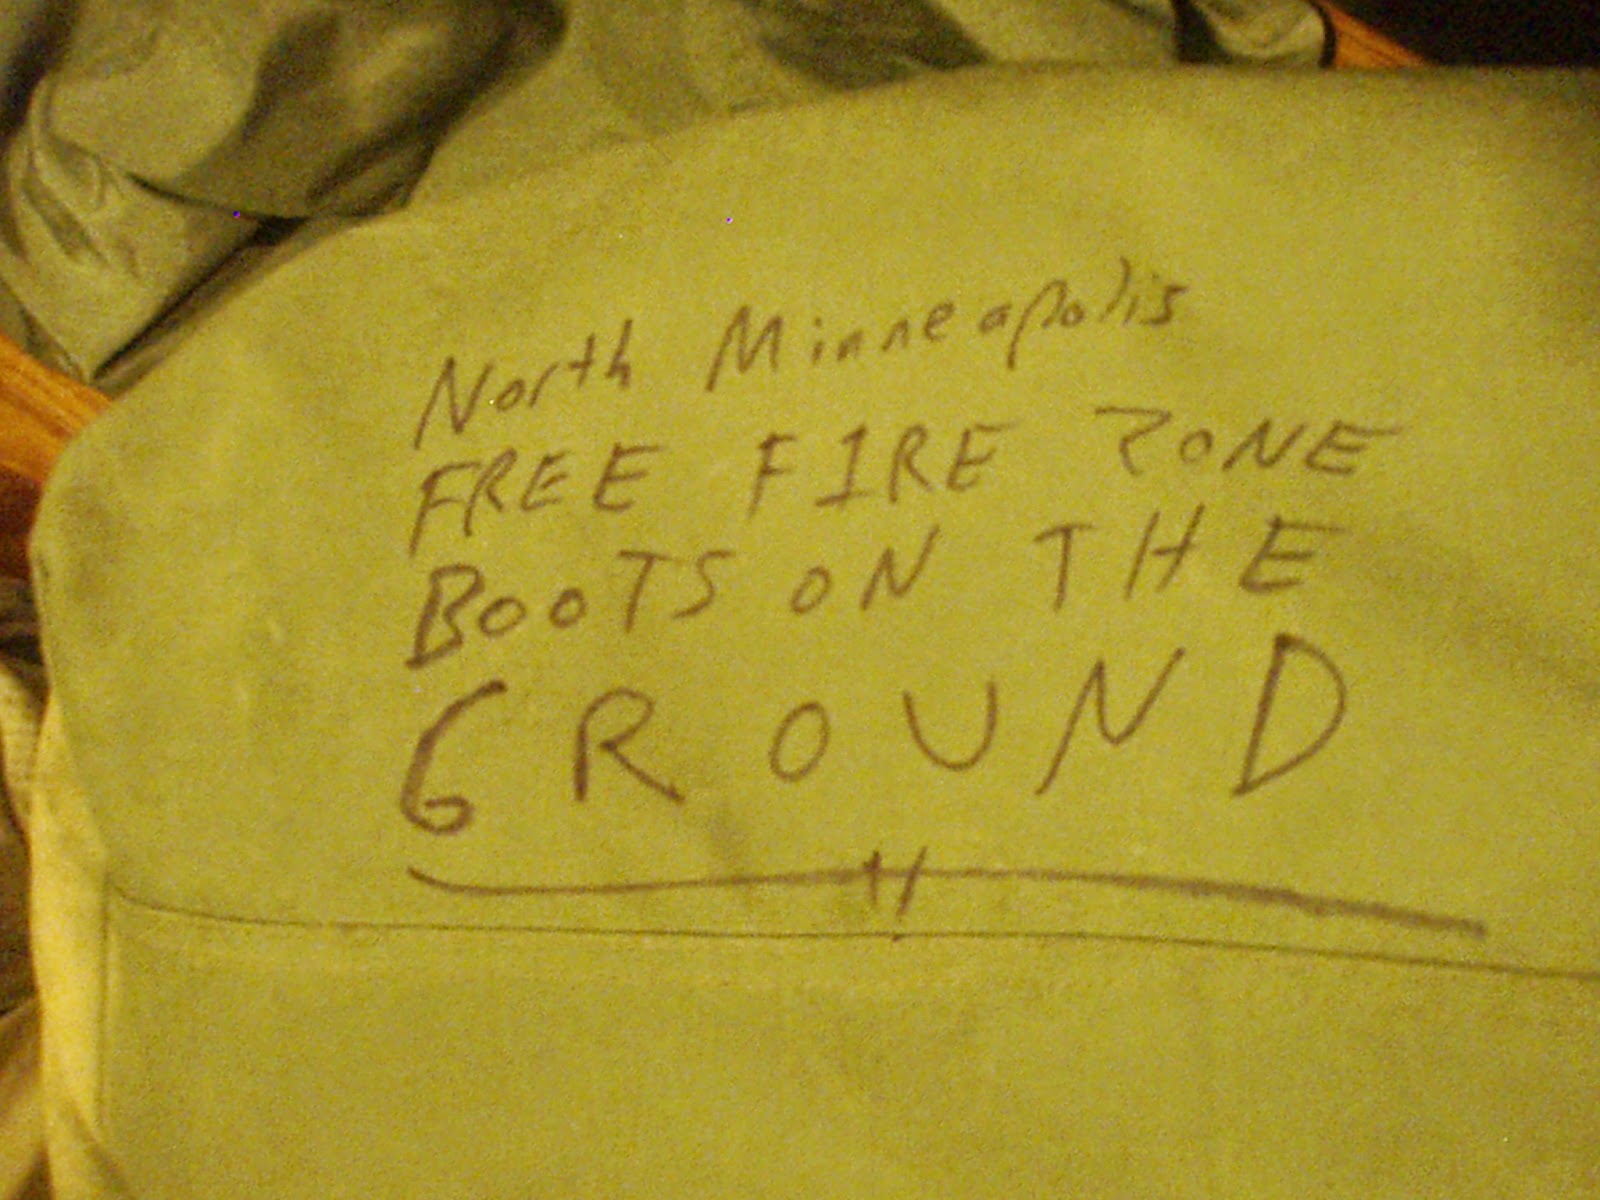 North Minneapolis
FREE FIRE ZONE
BOOTS ON THE
GROUND